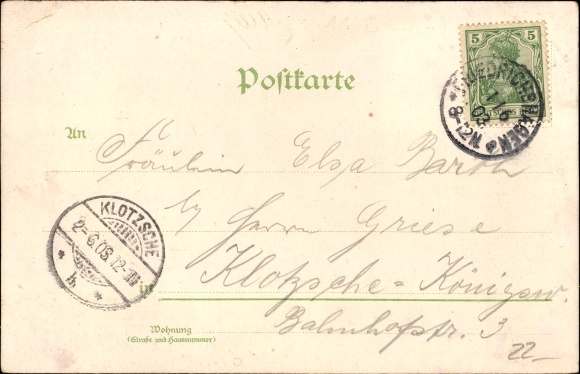 Postkarte
5
FRIEDRICHSHAGEN
1 6
03
8-12N.
An
Fräulein Elsa Barth
b/ Herrn Griese
KLOTZSCHE
2=6.03.12-1N
b.
in Klotzsche=Königsw.
Wohnung
(Straße und Hausnummer)
Bahnhofstr. 3
22-